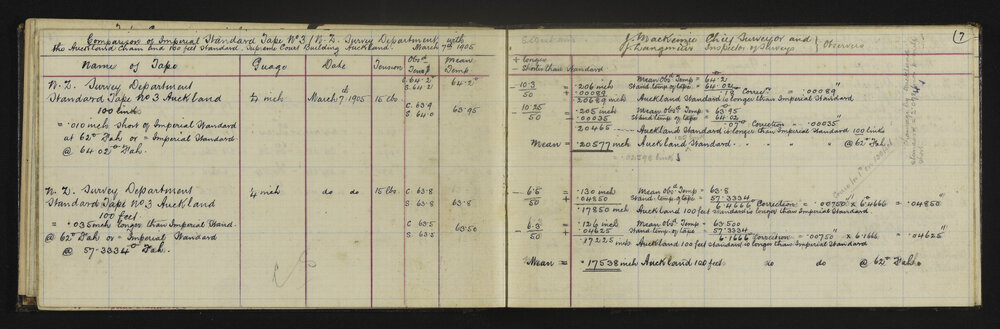 Comparison of Imperial Standard Tape No 3 / N.Z. Survey Department, with
the Auckland Chain and 100 feet Standard, Supreme Court Building Auckland. March 7th 1905
Name of Tape Guage Date Tension Obsd Temp Mean Temp
N.Z. Survey Department
Standard Tape No 3 Auckland
100 links
= .010 inch short of Imperial Standard
at 62° Fah. or = Imperial Standard
@ 64.02° Fah.
1/4 inch March 7th 1905 15 lbs.
C. 64.2° 64.2°
S. 64.2
C. 63.9 63.95
S. 64.0
N.Z. Survey Department
Standard Tape No 3 Auckland
100 feet
= .035 inch longer than Imperial Stand.
@ 62° Fah. or = Imperial Standard
@ 57.3334° Fah.
1/4 inch do do 15 lbs
C. 63.8
S. 63.8 63.8
C. 63.5 63.50
S. 63.5
J. Mackenzie Chief Surveyor and
J. Langmuir Inspector of Surveys
Observers
7
+ longer
- Shorter than Standard
- 10.3 / 50 = .206 inch Mean Obsd Temp = 64.2
+ .00089 Stand. temp. of tape = 64.02
.18 Correcn = .00089
.20689 inch Auckland Standard is longer than Imperial Standard
- 10.25 / 50 = .205 inch Mean Obsd Temp = 63.95
- .00035 Stand temp. of tape = 64.02
.07 Correction = .00035
.20465 Auckland Standard is longer than Imperial Standard 100 links
Mean = .20577 inch Auckland Standard " " " @ 62° Fah.
= .02598 links
- 6.5 / 50 = .130 inch Mean Obsd Temp = 63.8
+ .04850 Stand. temp of tape = 57.3334
6.4666 Correction = .00750 x 6.4666 = .04850
.17850 inch Auckland 100 feet standard is longer than Imperial Standard
- 6.3 / 50 = .126 inch Mean Obsd Temp = 63.500
+ .04625 Stand. temp. of tape = 57.3334
6.1666 Correction = .00750 x 6.1666 = .04625
.17225 inch Auckland 100 feet standard is longer than Imperial Standard
Mean = .17538 inch Auckland 100 feet do do @ 62° Fah.